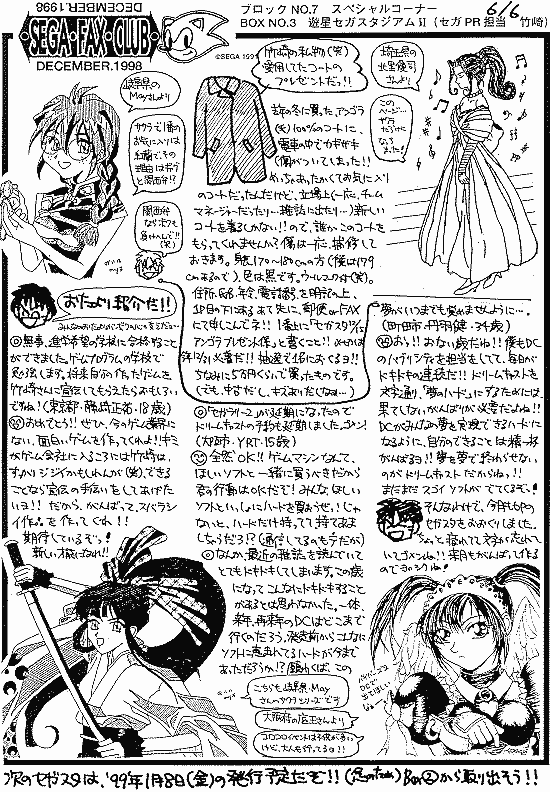 SEGA・FAX・CLUB
DECEMBER.1998
DECEMBER.1998
ブロックNO.7 スペシャルコーナー
BOX NO.3 遊星セガスタジアムⅡ(セガPR担当 竹崎)
6/6
©SEGA 199
竹崎の私物(笑)
愛用してたコートの
プレゼントだっ!!
埼玉県の
北里優司
さんより
岐阜県の
Mayさんより
このページ…
サクラで1番の
お気に入りは
紅蘭で、その
理由は何と
関西弁!?
関西弁
ならボクも
負けんで!!
(笑)
去年の冬に買った、アンゴラ
(笑)100%のコートに、
電車の中でカギザキ
(傷)がついてしまった!!
めっちゃあったかくてお気に入り
のコートだったんだけど、立場上(一応、チーム
マネージャーだったり…雑誌に出たり…)新しい
コートを着るしかない!!ので、誰かこのコートを
もらってくれませんか?僕は一応、補修して
おきます。身長170〜180cmの方(僕は179
cmあるので)。色は黒です。
住所、氏名、年令、電話番号を明記の上、
10日の下にあるあて先に、郵便かFAX
にて申しこんで!!1番上に「セガスタジアム
アンゴラプレゼント係」と書くこと!!
抽選で1名におくるヨ!!
ちなみに5万円くらいで買ったものです。
おたより紹介だ!!
◎無事、進学希望の学校に合格することが
できました。ゲームプログラムの学校で
頑張します。将来自分の作ったゲームを
竹崎さんに宣伝してもらえたらおもしろい
ですね!(東京都・藤崎正若・18歳)
おめでとう!!ぜひ、今のゲーム業界に
ない、面白いゲームを作ってくれよ!!キミ
がゲーム会社に入るころには竹崎は、
すっかりジジイかもしれんが(笑)できる
ことなら宣伝の手伝いをしてあげたい
ヨ!!だから、がんばって、スバラシ
イ作品を作ってくれ!!
期待しているぞっ!
新しい才能ばんれ!!
◎「セガラリー2」が延期になったので
ドリームキャストの予約も延期しました。ゴメン!
(大阪市・YRT・15歳)
全然OK!!ゲームマシンなんて、
ほしいソフトと一緒に買うべきだから
君の行動はOKだぞ!みんな、ほしい
ソフトといっしょにハードを買おうぜ。じゃ
ないと、ハードだけ持ってて持てあま
しちゃうだろ!?
◎なんか、最近の雑誌を読んでいて
とてもドキドキしてしまいます。この歳
になってこんなにドキドキすること
があるとは思わなかった。一体、
来年、再来年のDCはどこまで
行くのだろう。発売前からこんなに
ソフトに恵まれてるハードが今まで
あっただろうか!?願わくば、この
夢がいつまでも覚めませんように…。
(町田市・丹羽健・34歳)
おっ!!おない歳だね!!僕もDC
のパブリシティを担当をしてて、毎日が
ドキドキの連続だ!!ドリームキャストを
文字通り、「夢のハード」にするためには
果てしない、がんばりが必要だよね!!
DCがみんなの夢を実現できるハードに
なるように、自分のできることは精一杯
がんばるヨ!!夢を夢で終わらせない
のがドリームキャストだからねっ!!
まだまだスゴイソフトがでてくるぞっ!
そんなわけで、今月も4Pの
セガスタをおおくりしました。
来月もがんばって作る
のでヨロシクね!
こちらも岐阜県・May
さんのサクラシリーズです
大阪府の店主さんより
次のセガスタは、'99年1月8日(金)の発行予定だぞ!!(念のため)BOX②から取り出そう!!